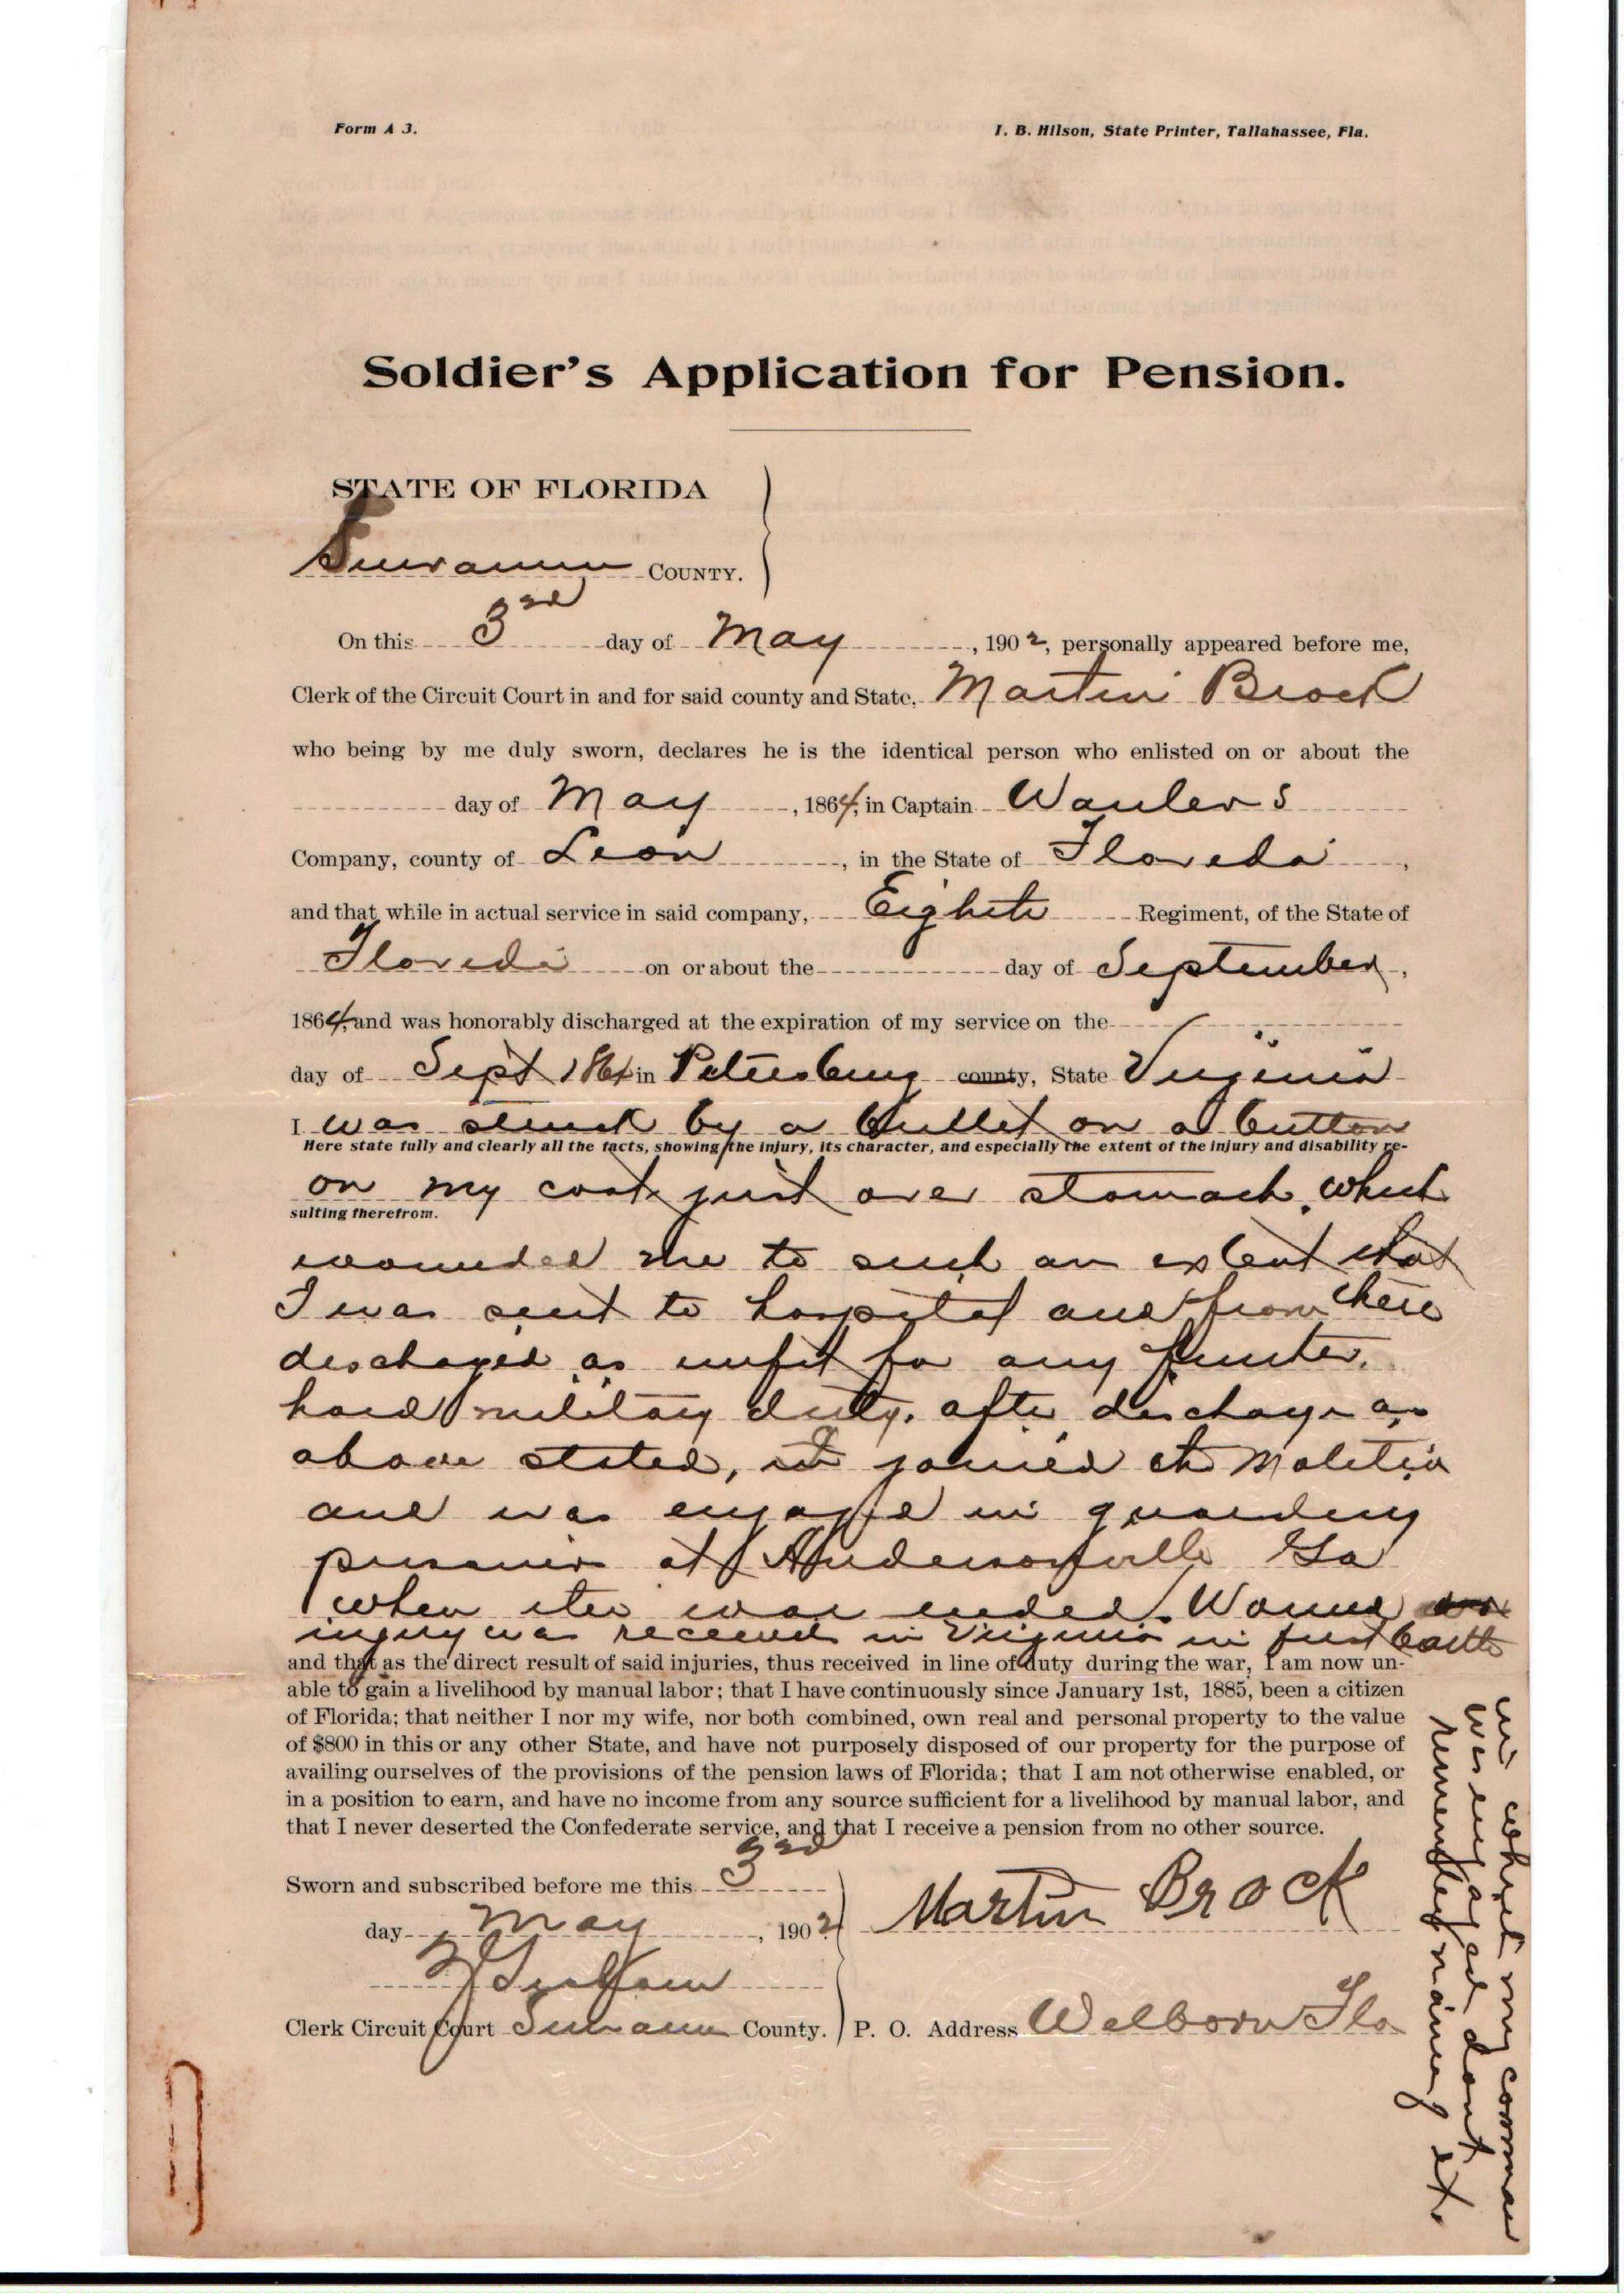 Form A 3.
I. B. Hilson, State Printer, Tallahassee, Fla.
Soldier's Application for Pension.
STATE OF FLORIDA
Suwannee COUNTY.
On this 3rd day of May, 1902, personally appeared before me,
Clerk of the Circuit Court in and for said county and State, Martin Brock
who being by me duly sworn, declares he is the identical person who enlisted on or about the
day of May, 1864, in Captain
Company, county of Leon, in the State of Floreda,
and that while in actual service in said company, Eighth Regiment, of the State of
Floreda on or about the day of September,
1864, and was honorably discharged at the expiration of my service on the
day of Sept 1864 in Petersburg county, State Virginia
I was struck by a bullet on a button
Here state fully and clearly all the facts, showing the injury, its character, and especially the extent of the injury and disability re-
on my coat just over stomach, which
sulting therefrom.
wounded me to such an extent that
I was sent to hospital and from there
discharged as unfit for any further
hard military duty. after discharge as
above stated, I joined the Malitia
and was engaged in guarding
prisoners at Andersonville Ga
when the war ended. Wound
injury was received in Virginia in first battle
and that as the direct result of said injuries, thus received in line of duty during the war, I am now un-
able to gain a livelihood by manual labor; that I have continuously since January 1st, 1885, been a citizen
of Florida; that neither I nor my wife, nor both combined, own real and personal property to the value
of $800 in this or any other State, and have not purposely disposed of our property for the purpose of
availing ourselves of the provisions of the pension laws of Florida; that I am not otherwise enabled, or
in a position to earn, and have no income from any source sufficient for a livelihood by manual labor, and
that I never deserted the Confederate service, and that I receive a pension from no other source.
in which my comman
was engaged dont
remember name of it.
Sworn and subscribed before me this 3rd
day May, 1902
Martin Brock
Clerk Circuit Court Suwannee County.
P. O. Address Welborn Fla